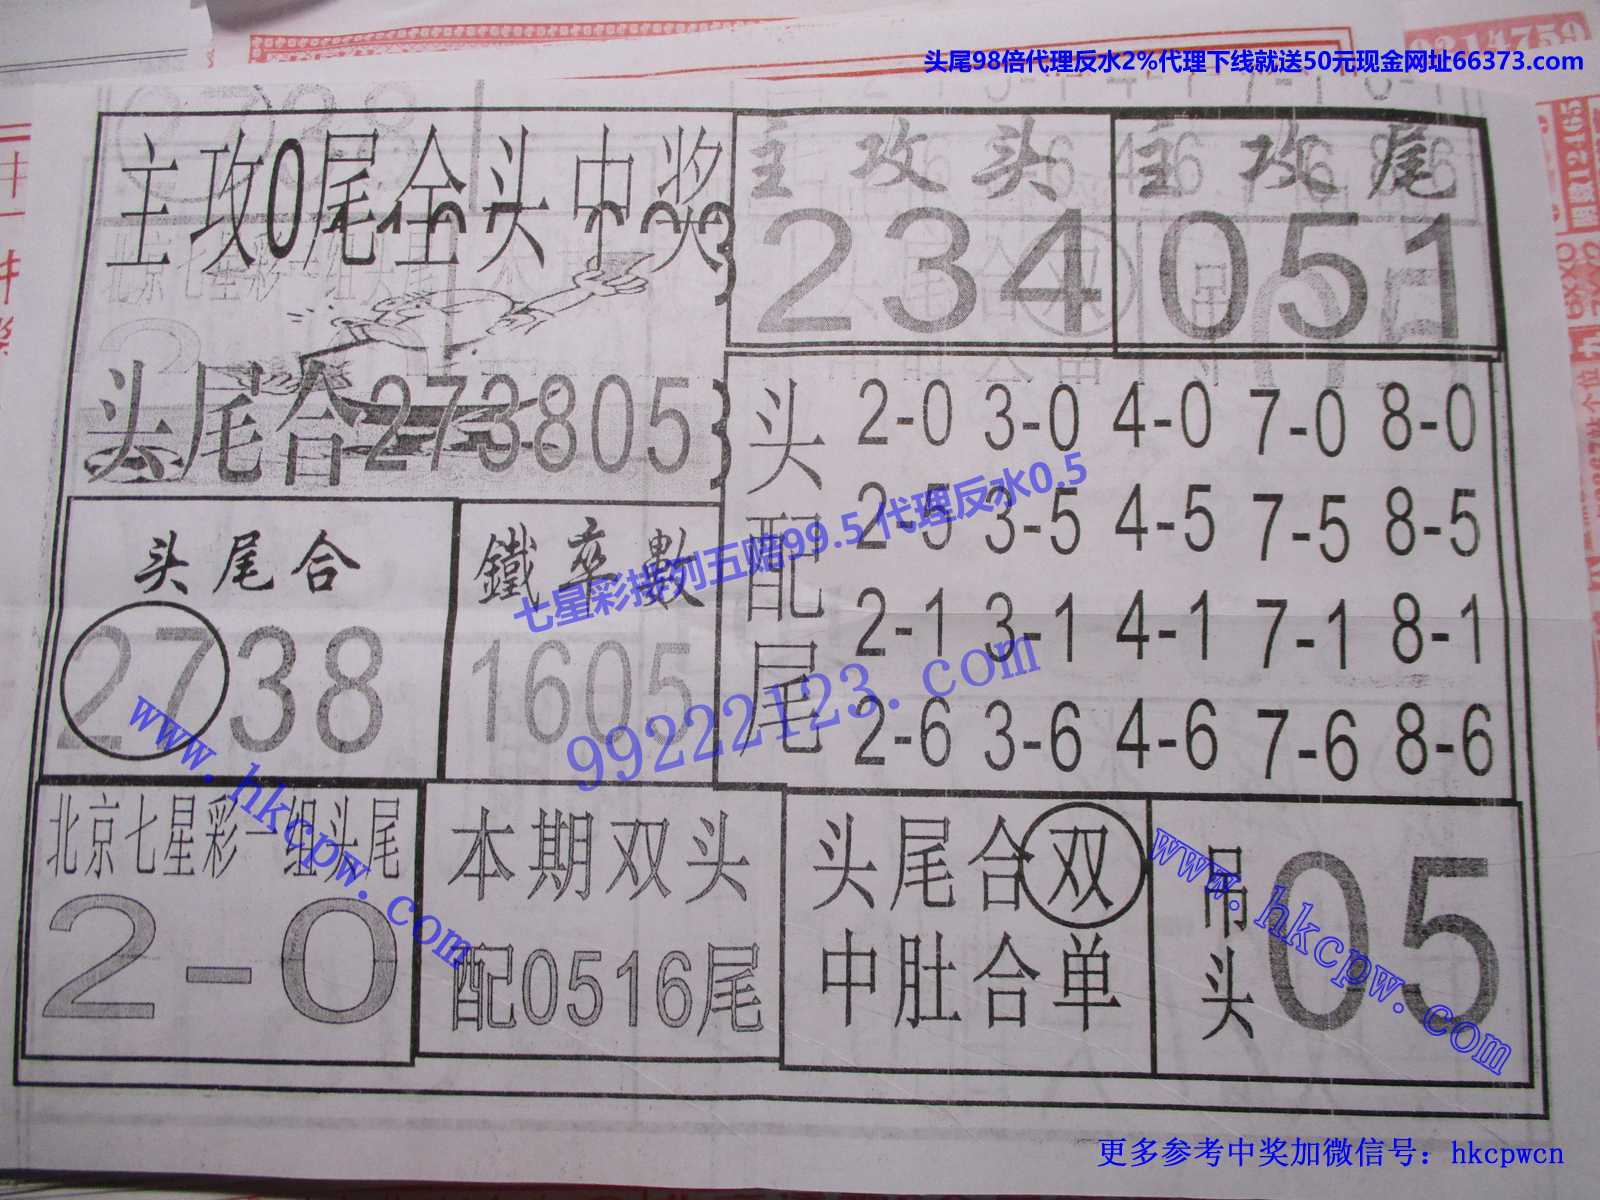 头尾98倍代理反水2%代理下线就送50元现金网址66373.com
主攻0尾全头中奖
主攻头
234
主攻尾
051
头尾合273805
头配尾
2-0 3-0 4-0 7-0 8-0
2-5 3-5 4-5 7-5 8-5
2-1 3-1 4-1 7-1 8-1
2-6 3-6 4-6 7-6 8-6
头尾合
2738
鐵率數
1605
七星彩排列五赔99.5 代理反水0.5
99222123.com
www.hkcpw.com
北京七星彩一组头尾
2-0
本期双头
配0516尾
头尾合双
中肚合单
吊头
05
www.hkcpw.com
更多参考中奖加微信号：hkcpwcn